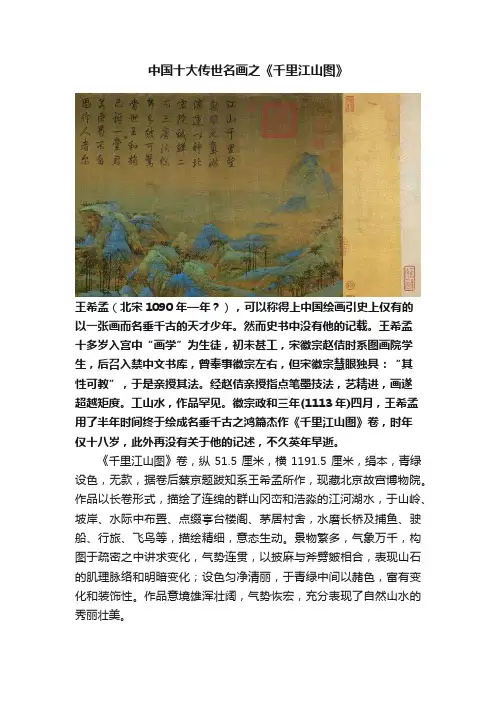 中国十大传世名画之《千里江山图》
江山千里望
無垠元氣淋
漓運以神北
宋院誠鮮二
本三唐法從
弗多皴可驚
當世王和趙
已訝一堂君
若臣曷不自
思作人者爾
王希孟（北宋1090年—年？），可以称得上中国绘画引史上仅有的
以一张画而名垂千古的天才少年。然而史书中没有他的记载。王希孟
十多岁入宫中“画学”为生徒，初未甚工，宋徽宗赵佶时系图画院学
生，后召入禁中文书库，曾奉事徽宗左右，但宋徽宗慧眼独具：“其
性可教”，于是亲授其法。经赵佶亲授指点笔墨技法，艺精进，画遂
超越矩度。工山水，作品罕见。徽宗政和三年(1113年)四月，王希孟
用了半年时间终于绘成名垂千古之鸿篇杰作《千里江山图》卷，时年
仅十八岁，此外再没有关于他的记述，不久英年早逝。
《千里江山图》卷，纵51.5厘米，横1191.5厘米，绢本，青绿
设色，无款，据卷后蔡京题跋知系王希孟所作，现藏北京故宫博物院。
作品以长卷形式，描绘了连绵的群山冈峦和浩淼的江河湖水，于山岭、
坡岸、水际中布置、点缀亭台楼阁、茅居村舍，水磨长桥及捕鱼、驶
船、行旅、飞鸟等，描绘精细，意态生动。景物繁多，气象万千，构
图于疏密之中讲求变化，气势连贯，以披麻与斧劈皴相合，表现山石
的肌理脉络和明暗变化；设色匀净清丽，于青绿中间以赭色，富有变
化和装饰性。作品意境雄浑壮阔，气势恢宏，充分表现了自然山水的
秀丽壮美。